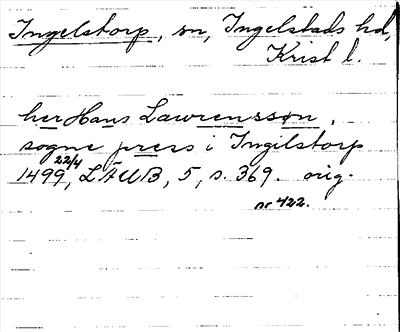 Ingelstorp, sn, Ingelstads hd,
Krist l.
her Hans Lawrensson,
sogne præst i Ingelstorp
1499 22/4, LÄUB, 5, s. 369. orig.
nr 422.